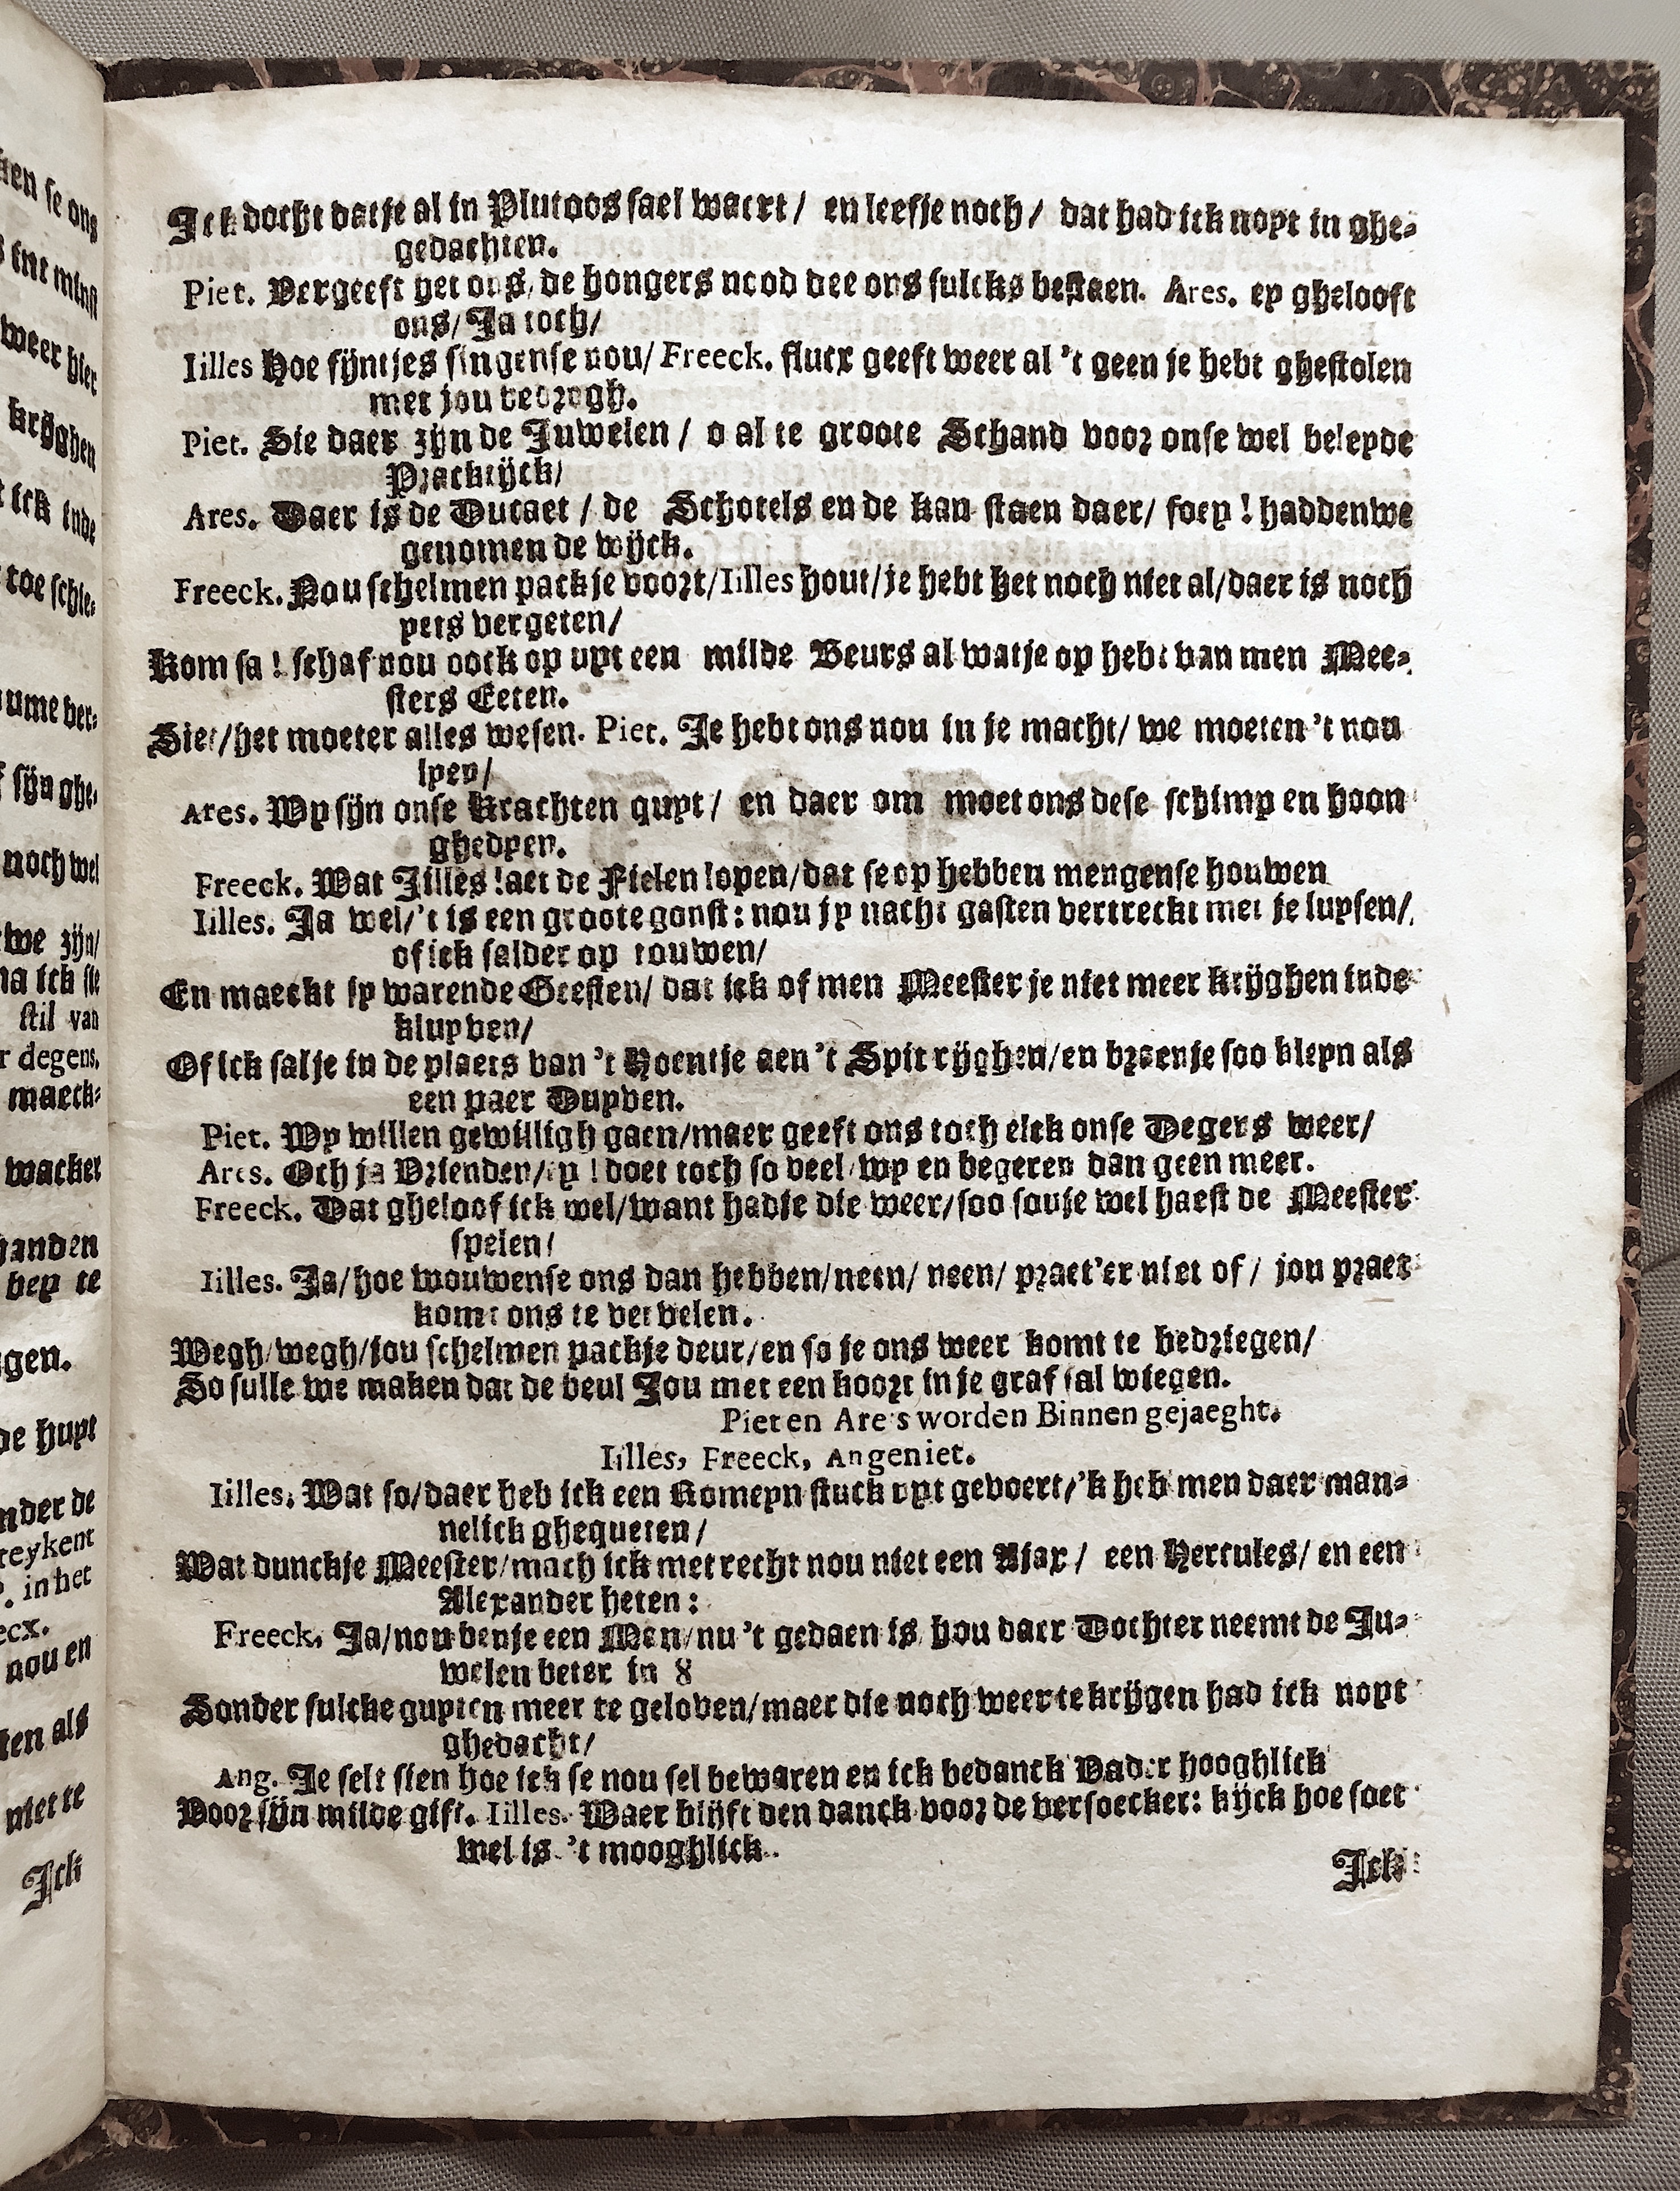 Ick docht datje al in Plutoos sael waert / en leefje noch / dat had ick noyt in ghe-
gedachten.
Piet. Vergeeft het ons, de hongers nood dee ons sulcks bestaen. Ares. ey ghelooft
ons/ Ja toch/
Iilles Hoe sijntjes singense nou/ Freeck. flucx geeft weer al 't geen je hebt ghestolen
met jou bedrogh.
Piet. Sie daer zijn de Juwelen / o al te groote Schand voor onse wel beleyde
Prackijck/
Ares. Daer is de Ducaet / de Schotels en de kan staen daer/ foey ! haddenwe
genomen de wijck.
Freeck. Nou schelmen packje voort/ Iilles hout/ je hebt het noch niet al/ daer is noch
yets vergeten/
Kom sa ! schaf nou oock op uyt een milde Beurs al watje op hebt van men Mee-
sters Eeten.
Siet/ het moeter alles wesen. Piet. Je hebt ons nou in je macht/ we moeten 't nou
lyen/
Ares. Wy sijn onse Krachten quyt / en daer om moet ons dese schimp en hoon
ghedyen.
Freeck. Wat Jilles laet de Fielen lopen/ dat se op hebben mengense houwen
Iilles. Ja wel/ 't is een groote gonst : nou jy nacht gasten vertreckt met je luysen/
of ick salder op touwen/
En maeckt jy warende Geesten/ dat ick of men Meester je niet meer krijghen inde
kluyven/
Of ick salje in de plaets van 't Hoentje aen 't Spit rijghen/ en braenje soo kleyn als
een paer Duyven.
Piet. Wy willen gewilligh gaen/ maer geeft ons toch elck onse Degers weer/
Ares. Och ja Vrienden/ ey ! doet toch so veel/ wy en begeren dan geen meer.
Freeck. Dat gheloof ick wel/ want hadje die weer/ soo souje wel haest de Meester
spelen/
Iilles. Ja/ hoe wouwense ons dan hebben/ neen/ neen/ praet'er niet of / jou praet
komt ons te vervelen.
Wegh/ wegh/ jou schelmen packje deur/ en so je ons weer komt te bedriegen/
So sulle we maken dat de beul Jou met een koort in je graf sal wiegen.
Piet en Ares worden Binnen gejaeght.
Iilles, Freeck, Angeniet.
Iilles. Wat so/ daer heb ick een Romeyn stuck uyt gevoert/ 'k heb men daer man-
nelick ghequeten/
Wat dunckje Meester/ mach ick met recht nou niet een Ajax / een Hercules/ en een
Alexander heten :
Freeck. Ja/ nou benje een Man/ nu 't gedaen is/ hou daer Dochter neemt de Ju-
welen beter in 8
Sonder sulcke guyten meer te geloven/ maer die noch weer te krijgen had ick noyt
ghedacht/
Ang. Je selt sien hoe ick se nou sel bewaren en ick bedanck Vader hooghlick
Voor sijn milde gift. Iilles. Waer blijft den danck voor de versoecker: kijck hoe soet
wel is 't mooghlick.
Ick